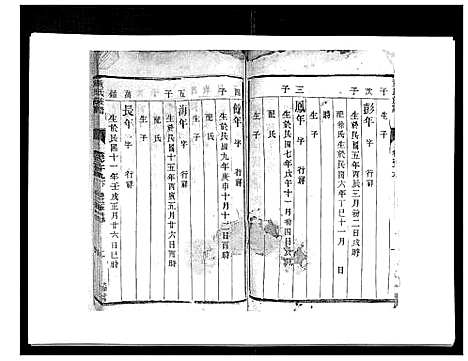 次
子
彭年 字 行 肖
生於民國五年丙辰三月初二日戌時
配徐氏生於民國六年丁巳十一月 日
時
生子
三
子
鳳年 字 行 肖
生於民國七年戊午十一月初四日戌時
配氏
生子
四
子
生於民國九年庚申十月十二日酉時
配氏
生子
五
子
海年 字 行 肖
生於民國十五年丙寅五月廿八日酉時
配氏
生子
萬
長年 字 行 肖
生於民國十一年壬戌正月廿六日巳時